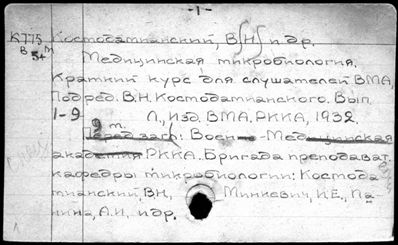 -1-
К775 Костодатианский, В Н и др.
В 54 m
Медицинская микробиология.
Краткий курс для слушателей ВМА,
Под ред. В.Н. Костодатианского. Вып.
1-9 Л., Изд. ВМА, РККА, 1932.
9 т.
Перед загл: Воен - Медицинская
академия РККА. Бригада преподават.
кафедры микробиологии: Костода
тианский, В.Н, Минкевич, И.Е., Па-
нина, А.И. и др.